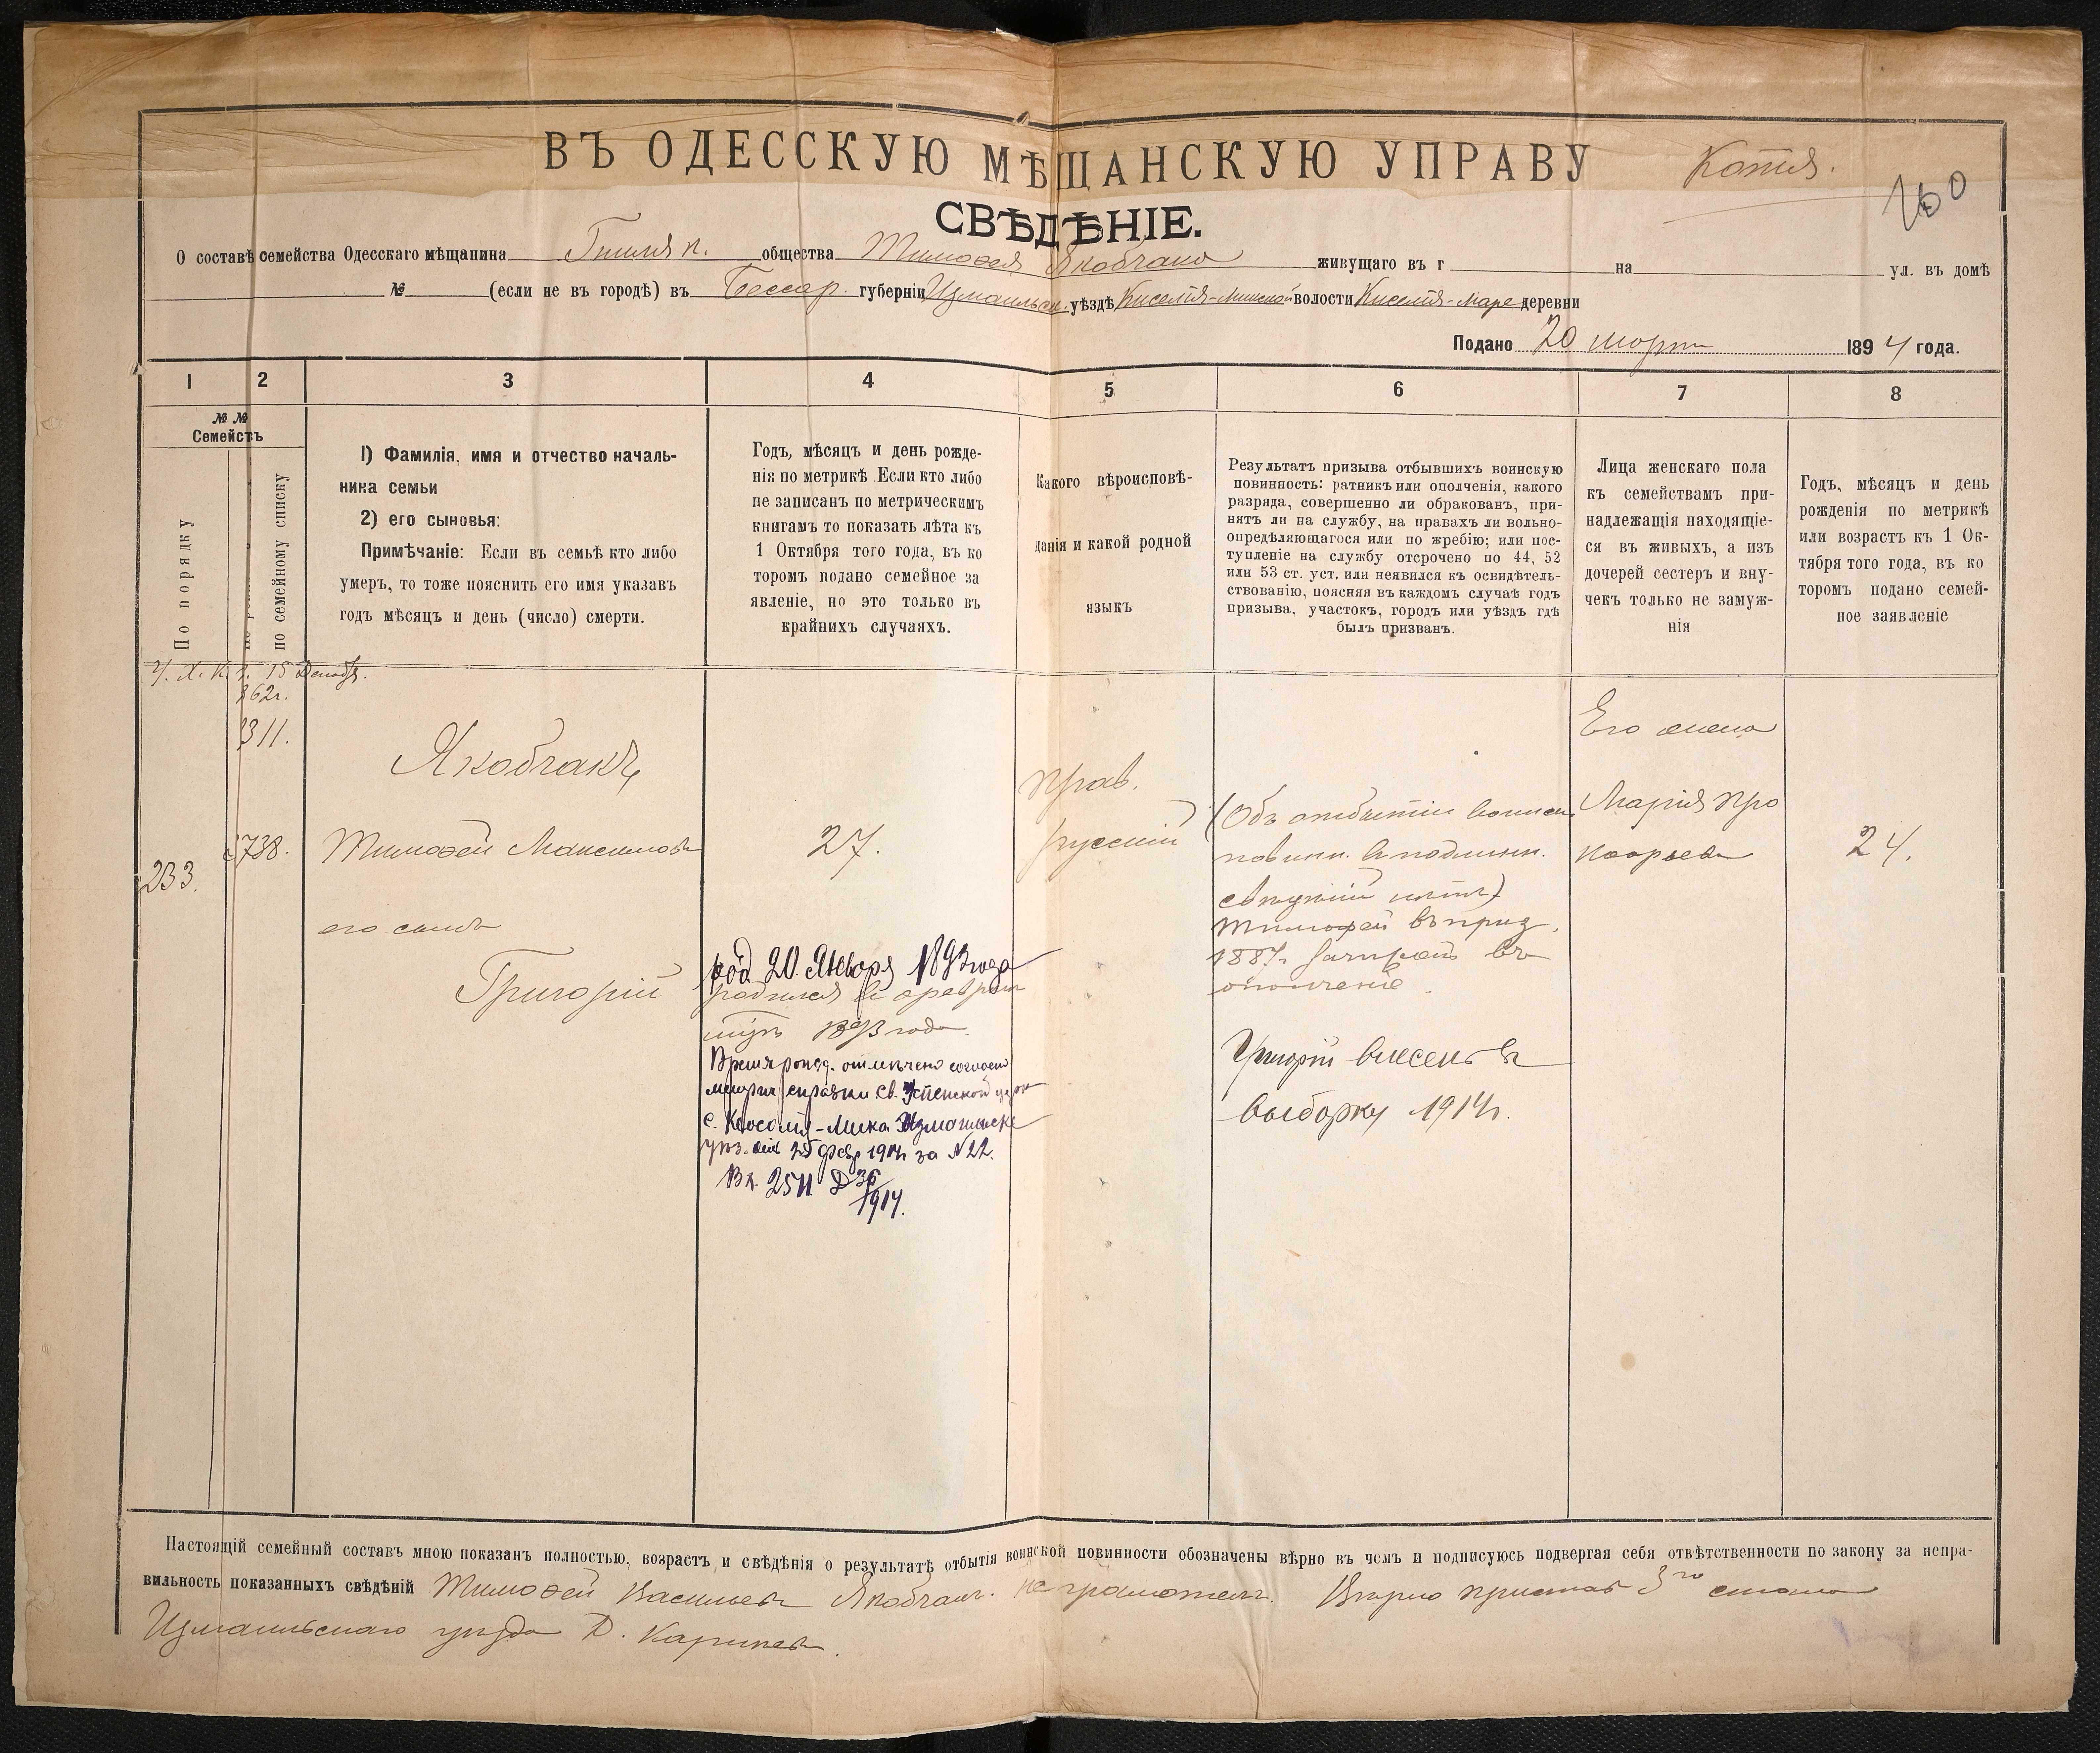 ВЪ ОДЕССКУЮ МѢЩАНСКУЮ УПРАВУ
Копія.
160
СВѢДѢНІЕ.
О составѣ семейства Одесскаго мѣщанина общества Тимоѳея Якобчака живущаго въ г на ул. въ домѣ
№ (если не въ городѣ) въ Бессар. губерніи Измаильск. уѣздѣ волости деревни
Подано 20 марта 1894 года.
1 2 3 4 5 6 7 8
№ № Семействъ
По порядку
по семейному списку
1) Фамилія, имя и отчество началь-
ника семьи
2) его сыновья:
Примѣчаніе: Если въ семьѣ кто либо
умеръ, то тоже пояснить его имя указавъ
годъ мѣсяцъ и день (число) смерти.
Годъ, мѣсяцъ и день рожде-
нія по метрикѣ Если кто либо
не записанъ по метрическимъ
книгамъ то показать лѣта къ
1 Октября того года, въ ко
торомъ подано семейное за
явленіе, но это только въ
крайнихъ случаяхъ.
Какого вѣроисповѣ-
данія и какой родной
языкъ
Результатъ призыва отбывшихъ воинскую
повинность: ратникъ или ополченія, какого
разряда, совершенно ли обракованъ, при-
нятъ ли на службу, на правахъ ли вольно-
опредѣляющагося или по жребію; или пос-
тупленіе на службу отсрочено по 44, 52
или 53 ст. уст. или неявился къ освидѣтель-
ствованію, поясняя въ каждомъ случаѣ годъ
призыва, участокъ, городъ или уѣздъ гдѣ
былъ призванъ.
Лица женскаго пола
къ семействамъ при-
надлежащія находящіе-
ся въ живыхъ, а изъ
дочерей сестеръ и вну-
чекъ только не замуж-
нія
Годъ, мѣсяцъ и день
рожденія по метрикѣ
или возрастъ къ 1 Ок-
тября того года, въ ко
торомъ подано семей-
ное заявленіе
15 Декабр.
862г.
311.
Якобчакъ
Его жена
прав.
738. Тимоѳей Максимовъ 27. русскій
(Объ отбытіи воинск.
повинн. въ подлинн.
свѣдѣніи нѣтъ)
Марія Про
кофьева
24.
233.
его сынъ
Тимофей въ приз.
1887г. зачисленъ въ
ополченіе.
Григорій
род 20 Января 1893 года
родился въ февралѣ
мѣс. 1893 года
Время рожд. отмѣчено согласно
метрич справки Св. Успенской церкви
Измаильск
уѣз. отъ 25 Февр 1914г за №22.
Вх. 2511 Д 36/1914.
Григорій внесенъ въ
выборку 1914г.
Настоящій семейный составъ мною показанъ полностью, возрастъ и свѣдѣнія о результатѣ отбытія воинской повинности обозначены вѣрно въ чемъ и подписуюсь подвергая себя отвѣтственности по закону за непра-
вильность показанныхъ свѣдѣній Тимоѳей Васильевъ Якобчакъ. не грамотенъ. Вѣрно Приставъ 3го стана
Измаильскаго уѣзда